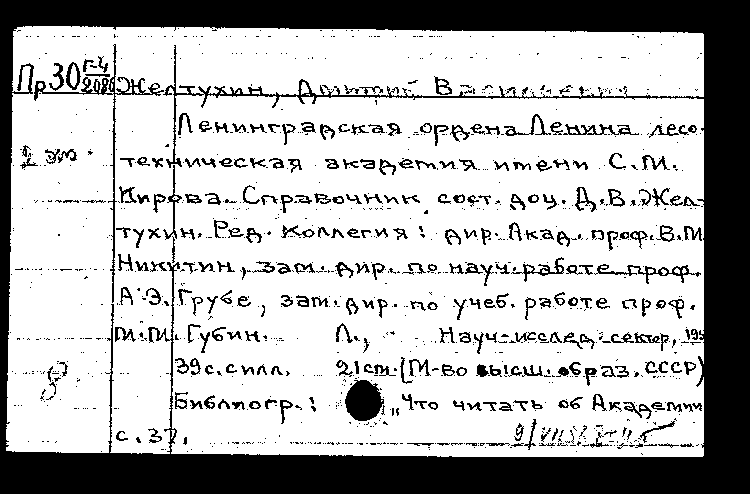 Пр30 Г-4
2080 Желтухин, Дмитрий Васильевич
Ленинградская ордена Ленина лесо-
2 экз. техническая академия имени С.М.
Кирова. Справочник сост. доц. Д.В. Жел-
тухин. Ред. коллегия: дир. Акад. проф. В.М.
Никитин, зам. дир. по науч. работе проф.
А.Э. Грубе, зам. дир. по учеб. работе проф.
М.М. Губин. Л., Науч-исслед. сектор, 195
39 с. с илл. 21 см. (М-во высш. образ. СССР)
8 Библиогр.: „Что читать об Академии
с. 37.